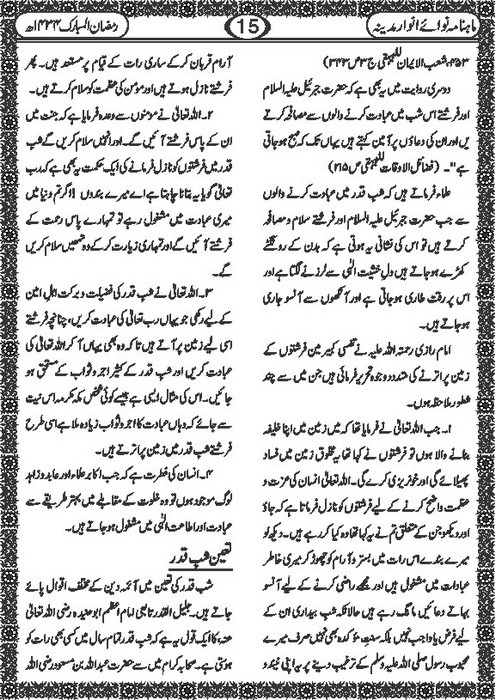 ماہنامہ نوائے انوار مدینہ
15
رمضان المبارک ۱۴۳۴ھ
۲۵۳، شعب الایمان للبیہقی ج ۳ ص ۳۴۳)
دوسری روایت میں یہ بھی ہے کہ حضرت جبرئیل علیہ السلام
اور فرشتے اس شب میں عبادت کرنے والوں سے مصافحہ کرتے
ہیں اور ان کی دعاؤں پر آمین کہتے ہیں یہاں تک کہ صبح ہو جاتی
ہے"۔ (فضائل الاوقات للبیہقی ص ۲۱۵)
علماء فرماتے ہیں کہ شب قدر میں عبادت کرنے والوں
سے جب حضرت جبرئیل علیہ السلام اور فرشتے سلام و مصافحہ
کرتے ہیں تو اس کی نشانی یہ ہوتی ہے کہ بدن کے رونگٹے
کھڑے ہو جاتے ہیں دل خشیت الٰہی سے لرزنے لگتا ہے اور
اس پر رقت طاری ہو جاتی ہے اور آنکھوں سے آنسو جاری
ہو جاتے ہیں۔
امام رازی رحمتہ اللہ علیہ نے تفسیر کبیر میں فرشتوں کے
زمین پر اترنے کی متعدد وجوہ تحریر فرمائی ہیں جن میں سے چند
سطور ملاحظہ ہوں۔
۱۔ جب اللہ تعالیٰ نے فرمایا تھا کہ میں زمین میں اپنا خلیفہ
بنانے والا ہوں تو فرشتوں نے کہا تھا یہ مخلوق زمین میں فساد
پھیلائے گی اور خونریزی کرے گی۔ اللہ تعالیٰ انسان کی عزت و
عظمت واضح کرنے کے لیے فرشتوں کو نازل فرماتا ہے کہ جاؤ
اور دیکھو جن کے متعلق تم نے یہ کہا تھا وہ کیا کر رہے ہیں۔ دیکھ لو
میرے بندے اس رات میں بستر و آرام کو چھوڑ کر میری خاطر
عبادات میں مشغول ہیں اور مجھے راضی کرنے کے لیے آنسو
بہاتے دعائیں مانگ رہے ہیں حالانکہ شب بیداری ان کے
لیے فرض یا واجب نہیں بلکہ سنت مؤکدہ بھی نہیں صرف میرے
محبوب رسول صلی اللہ علیہ وسلم کے ترغیب دینے پر یہ اپنی نیند و
آرام قربان کر کے ساری رات کے قیام پر مستعد ہیں۔ پھر
فرشتے نازل ہوتے ہیں اور مؤمن کی عظمت کو سلام کرتے ہیں۔
۲۔ اللہ تعالیٰ نے مؤمنوں سے وعدہ فرمایا ہے کہ جنت میں
ان کے پاس فرشتے آئیں گے۔ اور انہیں سلام کریں گے شب
قدر میں فرشتوں کو نازل فرمانے کی ایک حکمت یہ بھی ہے کہ رب
تعالیٰ گویا یہ بتانا چاہتا ہے اے میرے بندوں! اگر تم دنیا میں
میری عبادت میں مشغول رہے تو تمہارے پاس رحمت کے
فرشتے آئیں گے اور تمہاری زیارت کر کے وہ تمہیں سلام کریں
گے۔
۳۔ اللہ تعالیٰ نے شب قدر کی فضیلت و برکت اہل زمین
کے لیے رکھی جو یہاں رب تعالیٰ کی عبادت کریں، چنانچہ فرشتے
اسی لیے زمین پر آتے ہیں تاکہ وہ بھی یہاں آ کر اللہ تعالیٰ کی
عبادت کریں اور شب قدر کے کثیر اجر و ثواب کے مستحق ہو
جائیں۔ اس کی مثال ایسی ہے جیسے کوئی شخص مکہ مکرمہ اس نیت
سے جائے کہ وہاں عبادت کا اجر و ثواب زیادہ ملتا ہے اسی طرح
فرشتے شب قدر میں زمین پر اترتے ہیں۔
۴۔ انسان کی فطرت ہے کہ جب اکابر علماء اور عابد و زاہد
لوگ موجود ہوں تو وہ خلوت کے مقابلے میں بہتر طریقے سے
عبادت اور اطاعت الٰہی میں مشغول ہو جاتے ہیں۔
تعین شب قدر
شب قدر کی تعین میں آئمہ دین کے مختلف اقوال پائے
جاتے ہیں۔ جلیل القدر تابعی امام اعظم ابو حنیفہ رضی اللہ تعالیٰ
عنہ، کا ایک قول یہ ہے کہ شب قدر تمام سال میں کسی بھی رات کو
ہوتی ہے۔ صحابہ کرام میں سے حضرت عبداللہ بن مسعود رضی اللہ